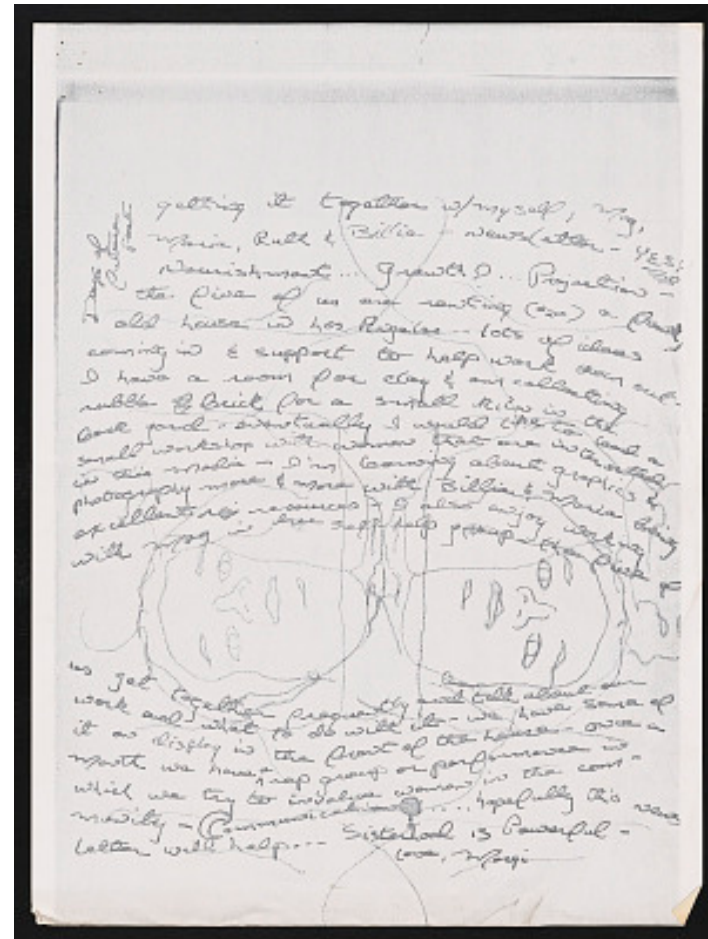 getting it together w/myself, Meg,
Maria, Ruth & Billie - Newsletter - YES!
Nourishment... growth!... Projection -
the five of us are renting a
old house in Los Angeles - lots of ideas
coming in & support to help work them out -
I have a room for clay & am collecting
rubble & brick for a small kiln in the
back yard - eventually I would like to lead a
small workshop with women that are interested
in this media - I'm learning about graphics &
photography more & more with Billie & Maria being
excellent resources. I also enjoy working
with Meg in her self help group - the five of
us get together frequently and talk about our
work and what to do with it - we have some of
it on display in the front of the house - once a
month we have rap group or performances in
which we try to involve women in the com-
munity - Communication .... hopefully this news
letter will help... Sisterhood is Powerful -
Love,
Days of